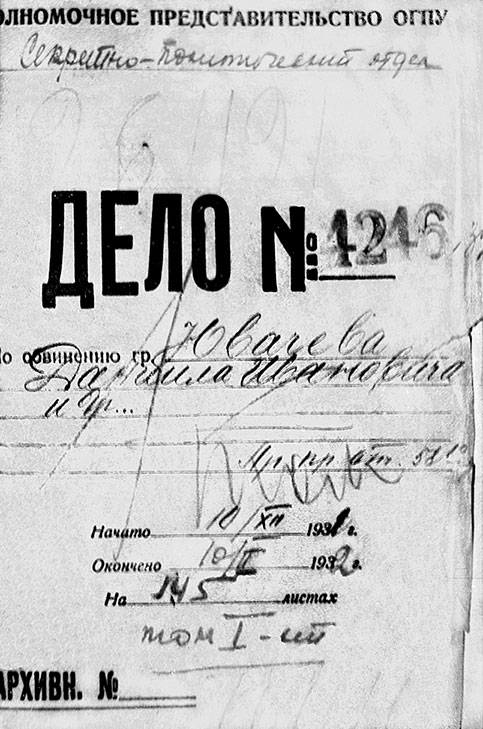 ОЛНОМОЧНОЕ ПРЕДСТАВИТЕЛЬСТВО ОГПУ
Секретно-политический отдел
ДЕЛО № 4246
По обвинению гр. Ювачева
Даниила Ивановича
и др...
пр. ст. 58¹⁰
Начато 10/XII 1931 г.
Окончено 10/II 1932 г.
На 145 листах
том I-ый
АРХИВН. №